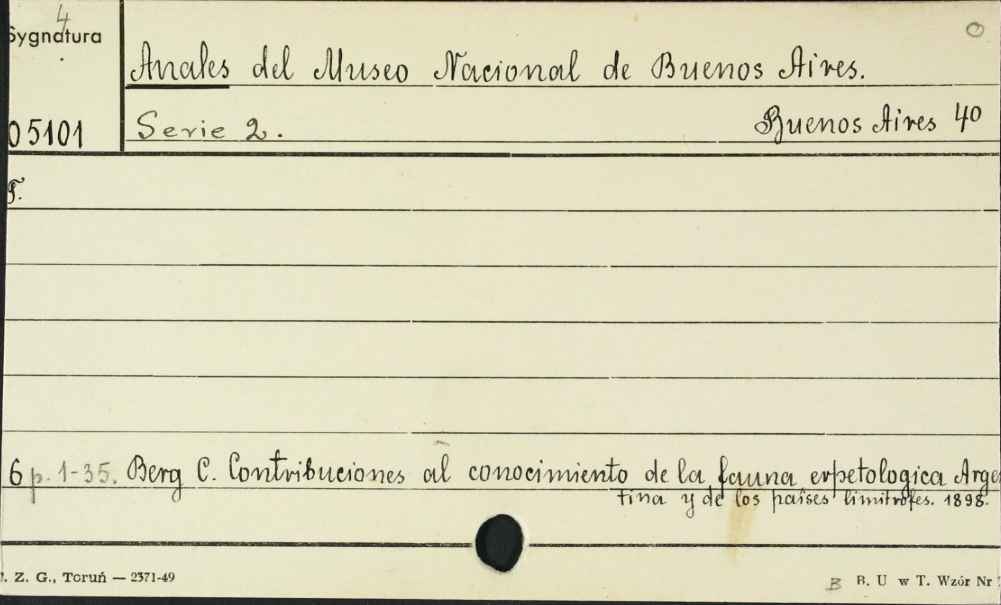 4
Sygnatura
O
Anales del Museo Nacional de Buenos Aires.
05101
Serie 2.
Buenos Aires 40
T.
6 p. 1-35. Berg C. Contribuciones al conocimiento de la fauna erpetologica Argen
tina y de los países limitrofes. 1898.
. Z. G., Toruń — 2371-49
B B. U w T. Wzór Nr